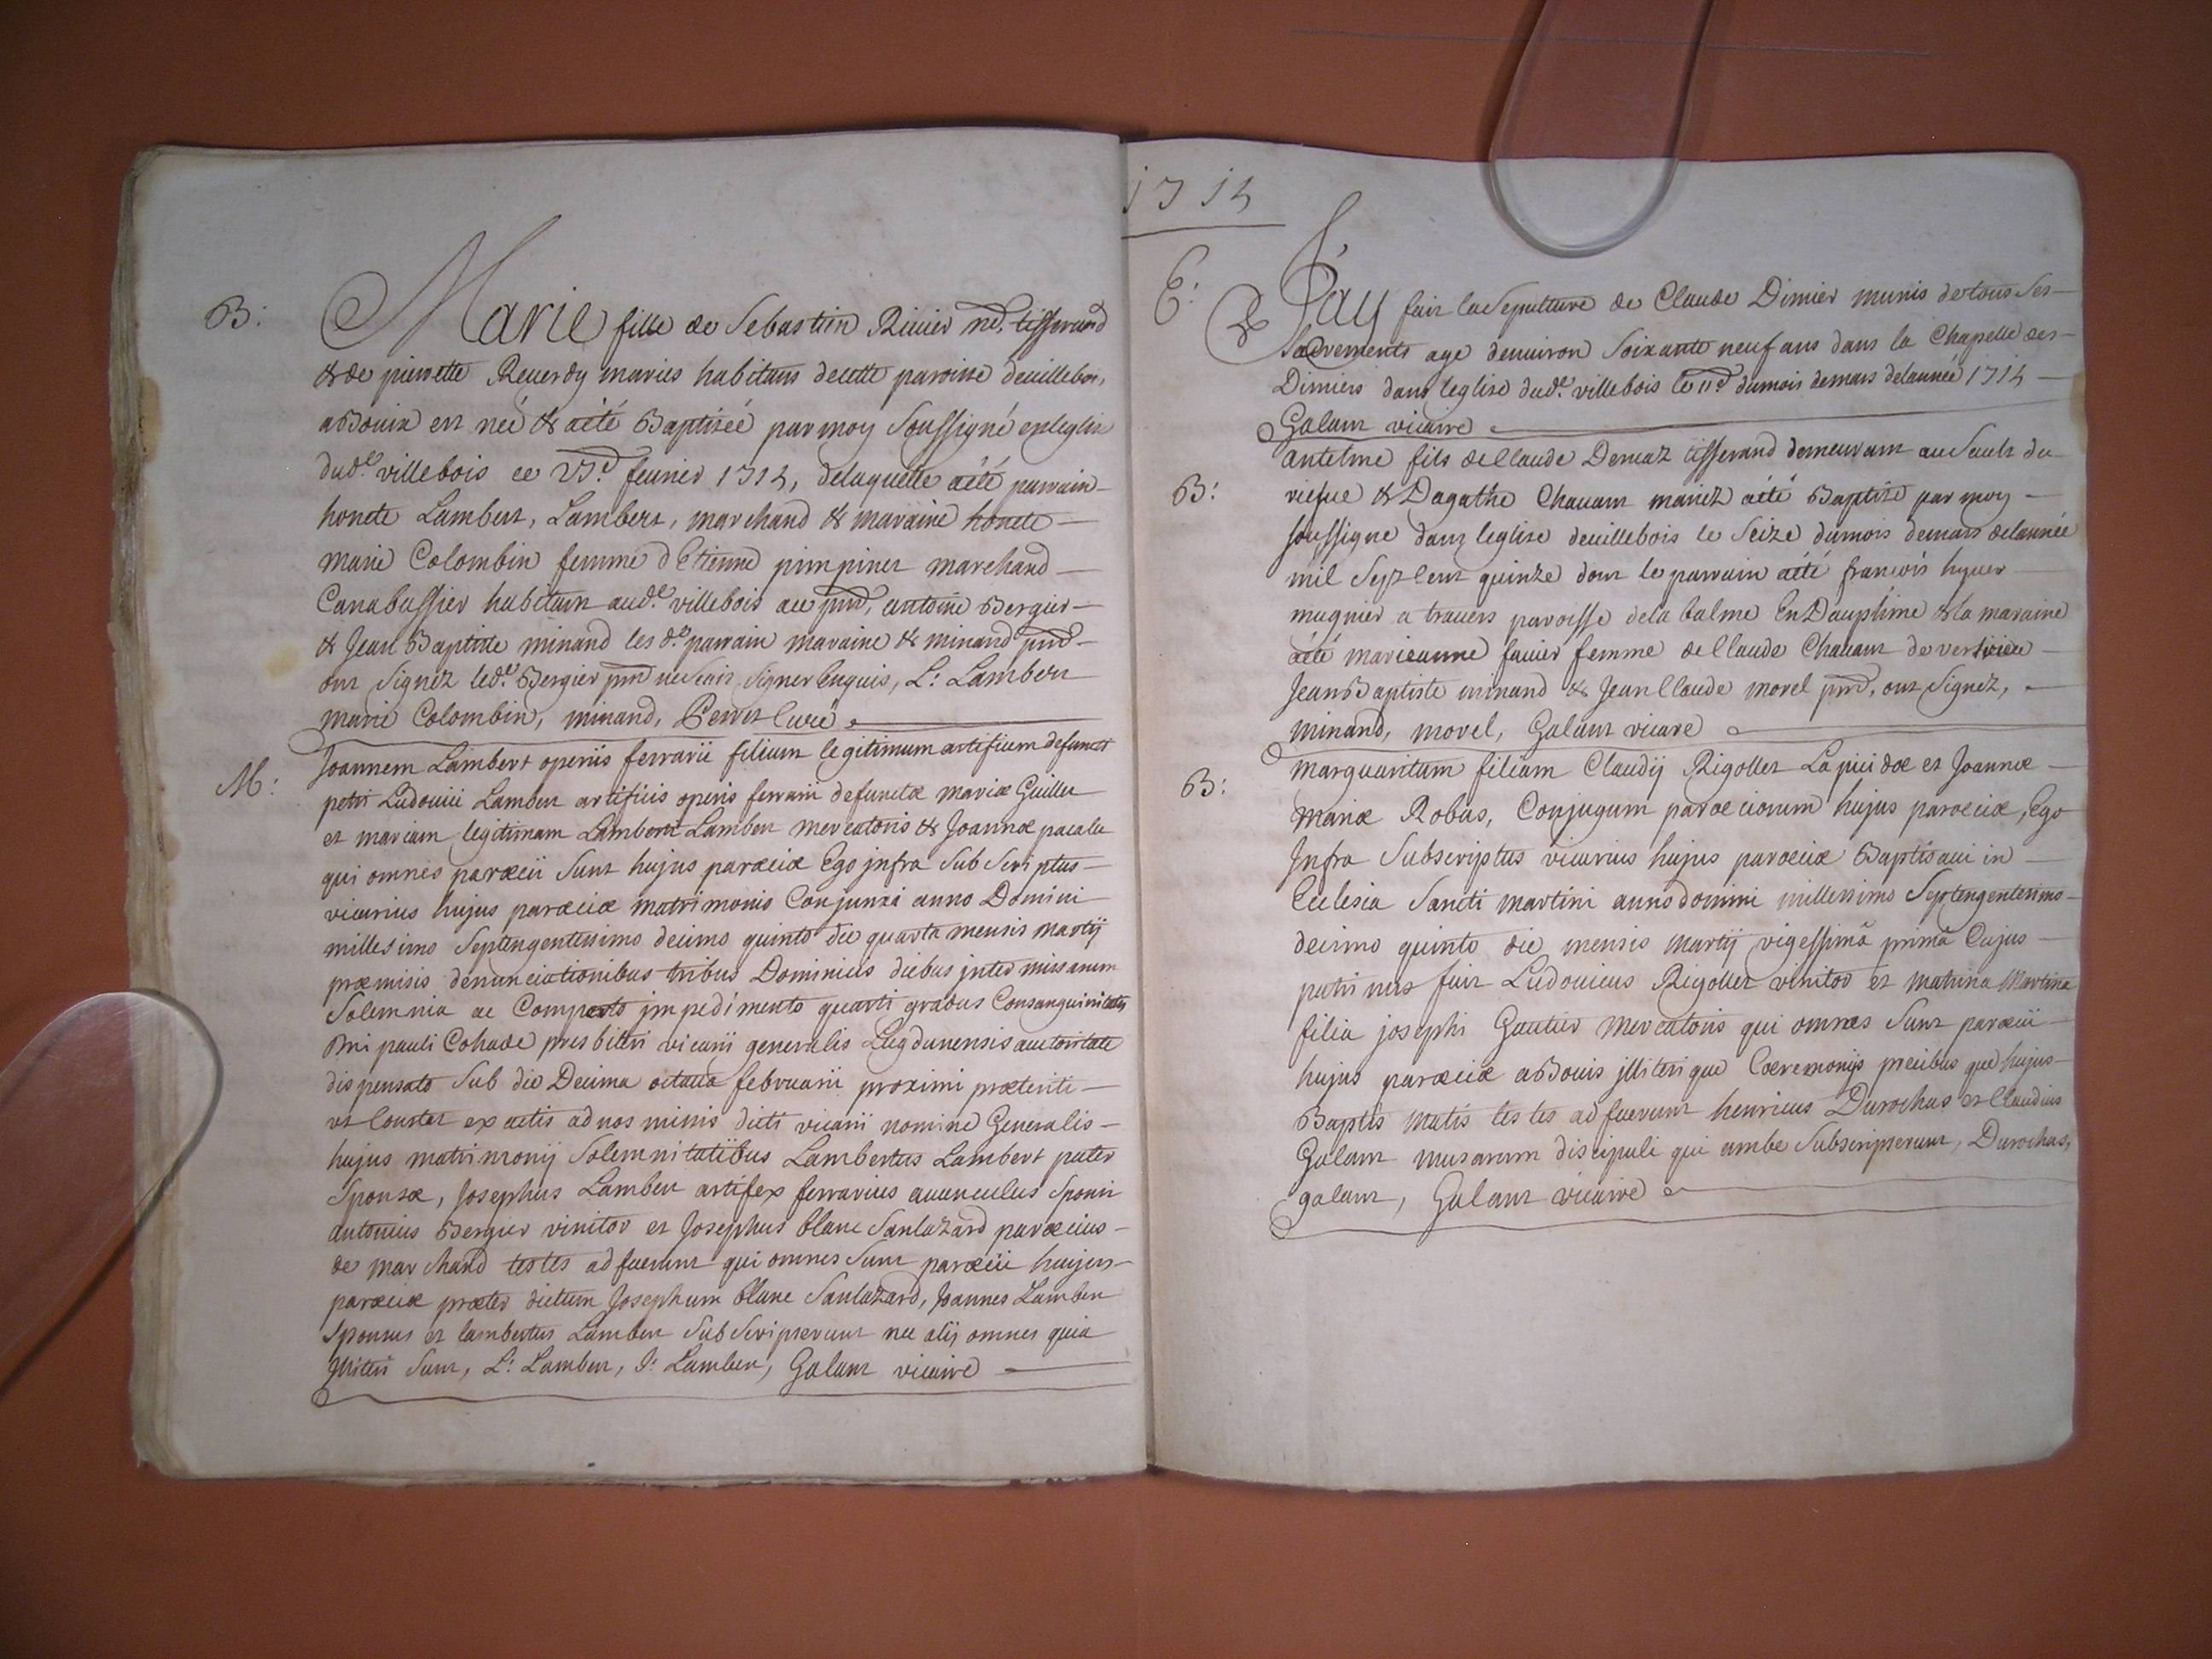 B: Marie fille de Sebastien Riuier md. tisserand
& de pierrette Reuerdy maries habitans decette paroisse deuillebois,
aBouix est neé & aété Baptizeé par moy Soussigné enleglise
dud.e villebois ce VI.e feurier 1715, delaquelle aété parrain
honete Lambert, Lambert, marchand & maraine honete
marie Colombin femme d'Etienne pimpinet marchand
Canabassier habitans aud.e villebois au pnd, antoine Bergier
& Jean Baptiste minand les d.es parrain maraine & minand pnd
ont Signez led.e Bergier pnd nesçait Signer Enquis, L: Lambert
marie Colombin, minand, Perret Curé
M: Joannem Lambert operis ferrarii filium legitimum artificum defuncti
petri Ludouici Lambert artificis operis ferrarii defunctæ mariæ Guillet
et mariam legitimam Lamberti Lambert mercatoris & Joannæ pacalet
qui omnes paræcii Sunt hujus paræciæ Ego jnfra Sub Scriptus
vicarius hujus paræciæ matrimonio Conjunxi anno Domini
millesimo Septingentesimo decimo quinto die quarta mensis martij
præmisis denunciationibus tribus Dominicis diebus jnter missarum
Solemnia ac Comperto jmpedimento quarti gradus Consanguinitatis
Dni pauli Cohade presbiteri vicarii generalis Lugdunensis auctoritate
dispensato Sub die Decima octaua februarii proximi præteriti
vt Constat ex actis ad nos missis dicti vicarii nomine Generalis
hujus matrimonij Solemnitatibus Lambertus Lambert pater
Sponsæ, Josephus Lambert artifex ferrarius auunculus Sponsi
antonius Bergier vinitor et Josephus blanc Sanlazard paræcius
de marchand testes adfuerunt qui omnes Sunt paræcii hujus
paræciæ præter dictum Josephum blanc Sanlazard, Joannes Lambert
Sponsus et lambertus Lambert SubScripserunt nec alij omnes quia
jlliteri Sunt, L: Lambert, J: Lambert, Galant vicaire
1715
E: J'ay fait la Sepulture de Claude Dimier munis detous Ses
Sacrements age denuiron Soixante neuf ans dans la Chapelle des
Dimiers dans leglise dud.e villebois le 11.e dumois demars delanneé 1715
Galant vicaire
B: antelme fils deClaude Demaz tisserand demeurant auSault du
& Dagathe Chauant mariez aété Baptize par moy
soussigne dans leglise deuillebois le Seize dumois demars delanneé
mil Sept Cent quinze dont le parrain aété francois huguet
mugnier a trauers paroisse dela balme En Dauphine & la maraine
aété marieanne fauier femme deClaude Chauant de
Jean Baptiste minand & Jean Claude morel pnd, ont Signez,
minand, morel, Galant vicaire
B: Margaaritam filiam Claudij Rigollet Lapicidæ et Joannæ
Mariæ Robas, Conjugum paroeciorum hujus paroeciæ, Ego
Jnfra Subscriptus vicarius hujus paroeciæ Baptisaui in
Ecclesia Sancti martini anno domini millesimo Septengentesimo
decimo quinto die mensis martij vigessimâ primâ Cujus
patrinus fuit Ludouicus Rigollet vinitor et matrina Martina
filia josephi Gautier mercatoris qui omnes Sunt paræcii
hujus paræciæ aBouis jlliterique Cæremonijs precibusque hujus
Baptismatis testes adfuerunt henricus Durochas et Claudius
Galant musarum discipuli qui ambo Subscripserunt, Durochas,
galant, Galant vicaire